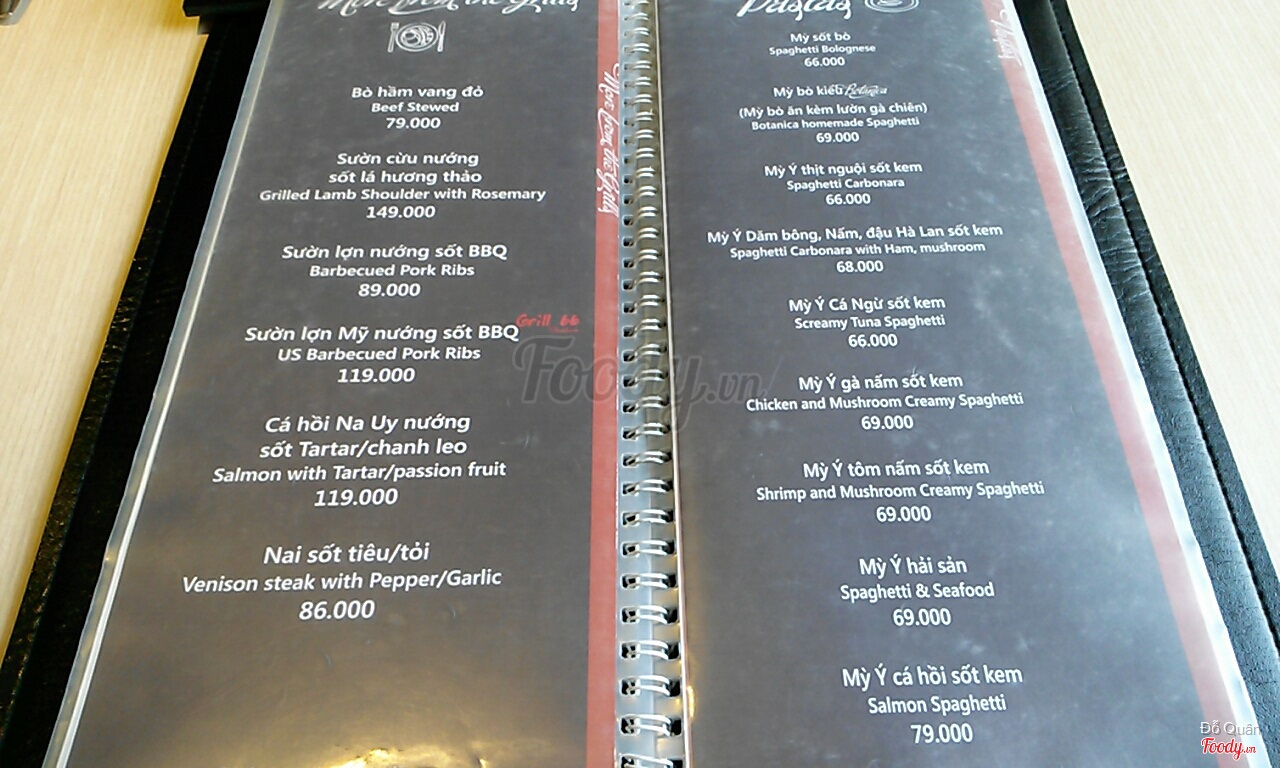 More from the Grills
Bò hầm vang đỏ
Beef Stewed
79.000
Sườn cừu nướng
sốt lá hương thảo
Grilled Lamb Shoulder with Rosemary
149.000
Sườn lợn nướng sốt BBQ
Barbecued Pork Ribs
89.000
Sườn lợn Mỹ nướng sốt BBQ
Grill 66
US Barbecued Pork Ribs
119.000
Cá hồi Na Uy nướng
sốt Tartar/chanh leo
Salmon with Tartar/passion fruit
119.000
Nai sốt tiêu/tỏi
Venison steak with Pepper/Garlic
86.000
More from the Grills
Pastas
Mỳ sốt bò
Spaghetti Bolognese
66.000
Mỳ bò kiểu Botanica
(Mỳ bò ăn kèm lườn gà chiên)
Botanica homemade Spaghetti
69.000
Mỳ Ý thịt nguội sốt kem
Spaghetti Carbonara
66.000
Mỳ Ý Dăm bông, Nấm, đậu Hà Lan sốt kem
Spaghetti Carbonara with Ham, mushroom
68.000
Mỳ Ý Cá Ngừ sốt kem
Screamy Tuna Spaghetti
66.000
Mỳ Ý gà nấm sốt kem
Chicken and Mushroom Creamy Spaghetti
69.000
Mỳ Ý tôm nấm sốt kem
Shrimp and Mushroom Creamy Spaghetti
69.000
Mỳ Ý hải sản
Spaghetti & Seafood
69.000
Mỳ Ý cá hồi sốt kem
Salmon Spaghetti
79.000
Pastas
Foody.vn
Đỗ Quân
Foody.vn